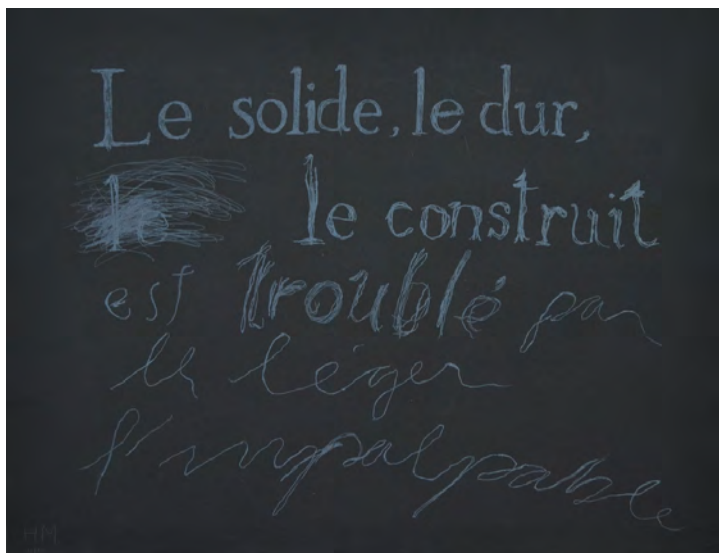 Le solide, le dur,
le le construit
est troublé par
le léger
l'impalpable
HM